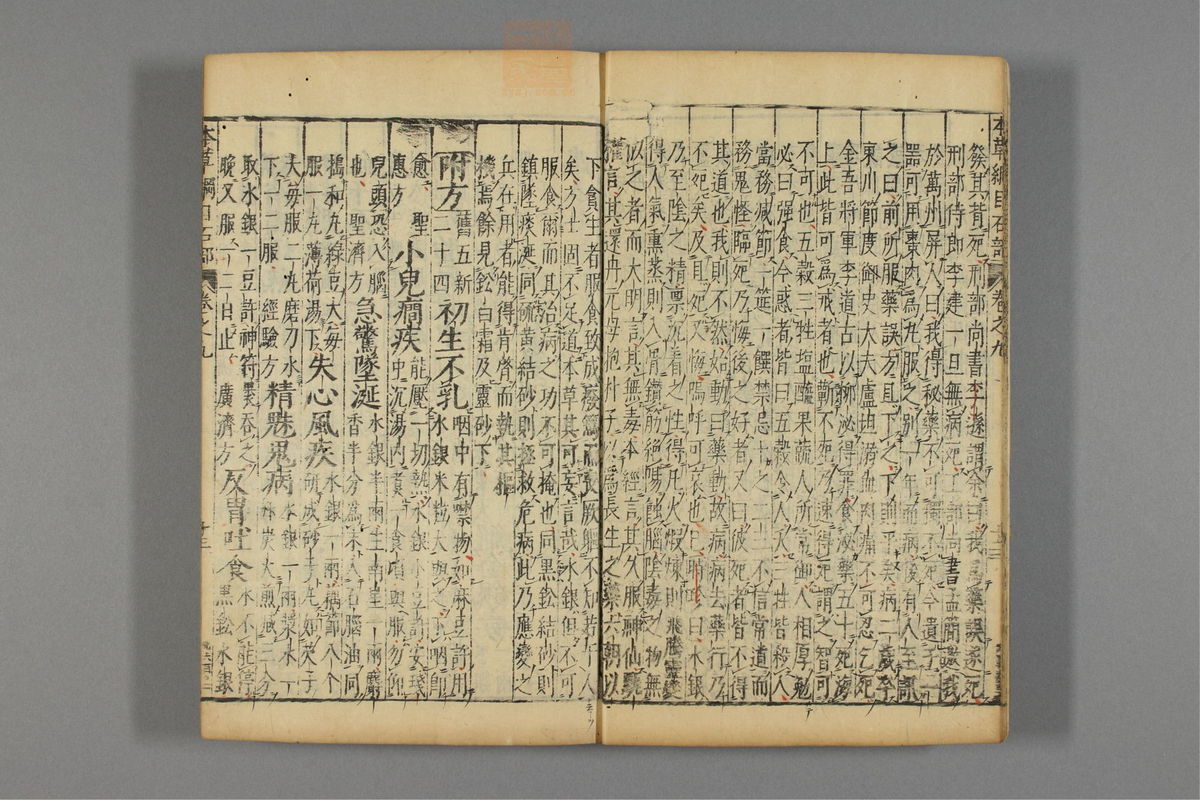 本草綱目石部 卷之九
筴其背死刑部尚書李遜謂余曰我爲藥誤遂死
刑部侍郎李建一旦無病死工部尚書孟簡邀我
於萬州屏人曰我得秘藥不可獨不死今遺子一
器可用棗肉爲丸服之別一年而病後有人至訊
之曰前所服藥誤方且下之下則平矣病二歲卒
東川節度御史大夫盧坦溺血肉痛不可忍乞死
金吾將軍李道古以柳泌得罪食泌藥五十死海
上此皆可爲戒者也蘄不死乃速得死謂之智可
不可也五穀三牲鹽醯果蔬人所常御人相厚勉
必曰强食今惑者皆曰五穀令人夭三牲皆殺人
當務減節一筵之饌禁忌十之二三不信常道而
務鬼怪臨死乃悔後之好者又曰彼死者皆不得
其道也我則不然始動曰藥動故病病去藥行乃
不死矣及且死又悔嗚呼可哀也已時珍曰水銀
乃至陰之精禀沉着之性得凡火煅煉則飛騰靈變
得人氣熏蒸則入骨鑽筋絶陽蝕腦陰毒之物無
似之者而大明言其無毒本經言其久服神仙甄
權言其還丹元母抱朴子以爲長生之藥六朝以
下貪生者服食致成廢篤而喪厥軀不知若干人
矣方士固不足道本草其可妄言哉水銀但不可
服食爾而其治病之功不可掩也同黑鉛結砂則
鎮墜痰涎同硫黄結砂則拯救危病此乃應變之
兵在用者能得肯綮而執其樞
機焉餘見鉛白霜及靈砂下
附方 舊五新二十四 初生不乳 咽中有噤物如麻豆許用水銀米粒大與之下咽卽
愈 聖惠方 小兒癇疾 能壓一切熱水銀小豆許安盞中沉湯內煮一食頃與服勿仰
兒頭恐入腦也 聖濟方 急驚墜涎 水銀半兩生南星一兩麝香半分爲末入石腦油同
搗和丸綠豆大每服一丸薄荷湯下 失心風疾 水銀一兩藕節八個研成砂子丸如芡子
大每服二丸磨刀水下一二服 經驗方 精魅鬼病 水銀一兩漿水一升炭火煎減三分
取水銀一豆許神符裹吞之晚又服一二日止 廣濟方 反胃吐食 水不能停黑鉛水銀
本草綱目石部 卷之九 十三